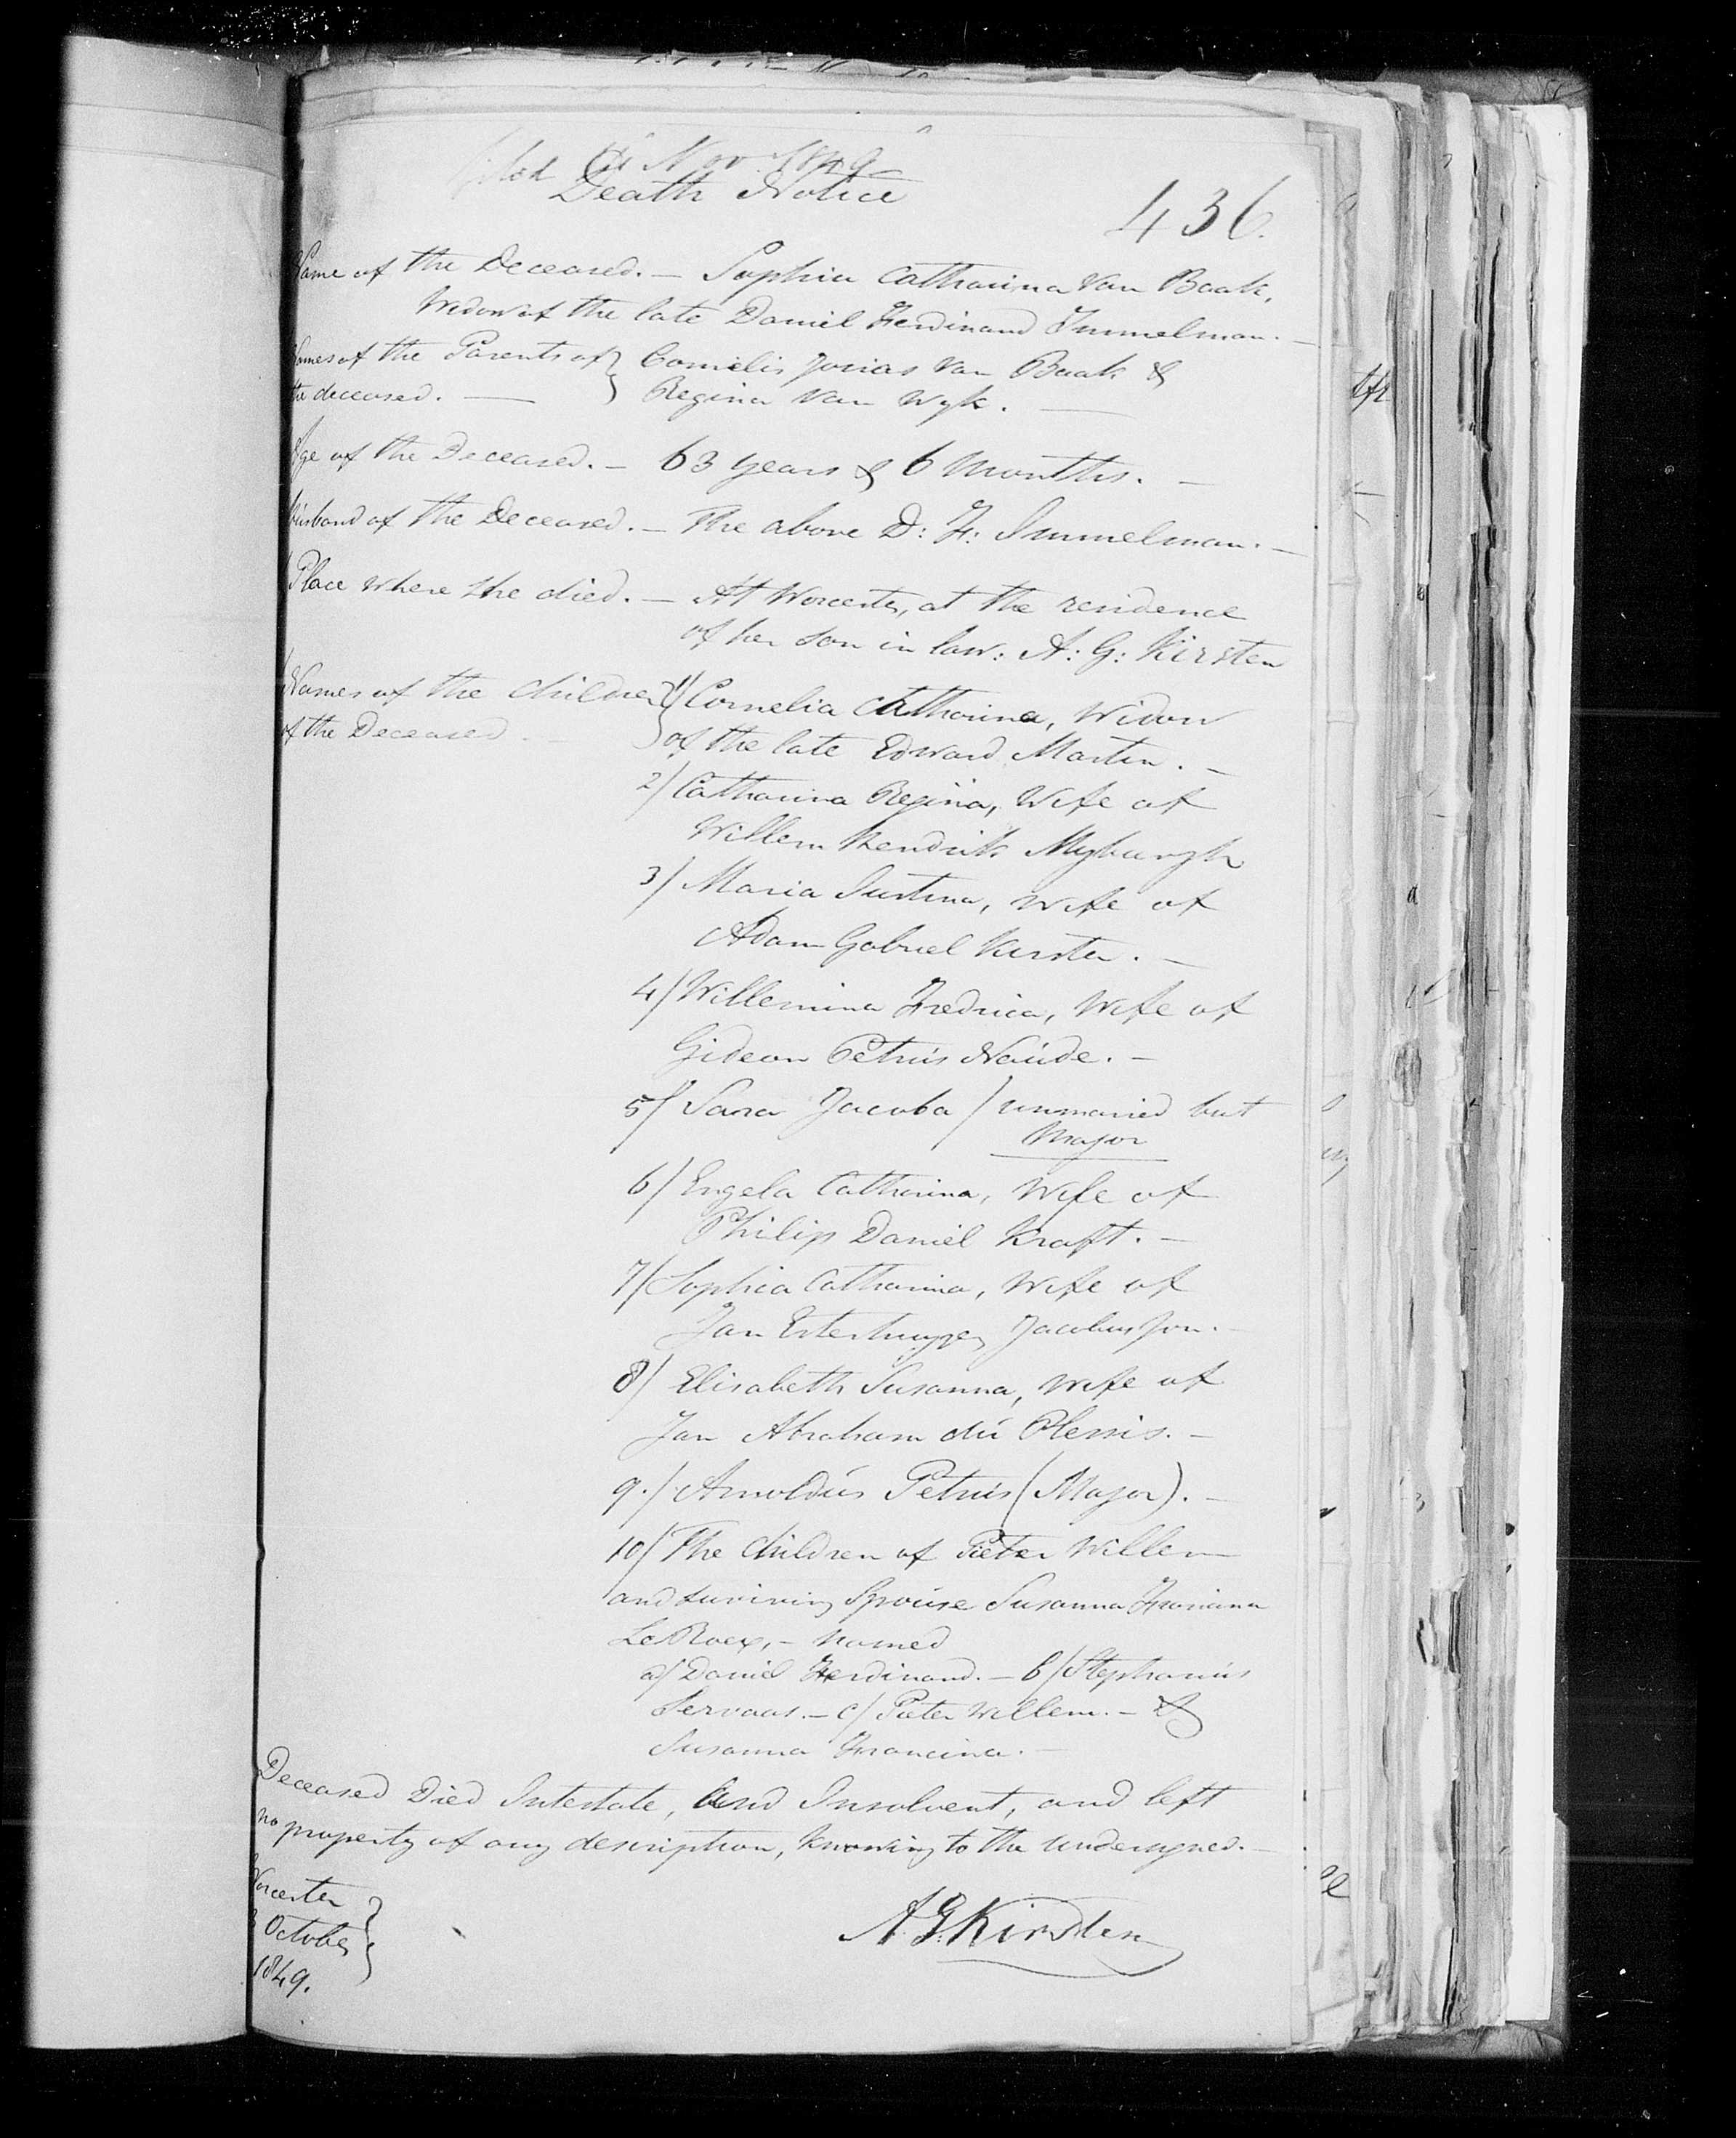 filed Nov 1849
Death Notice
436.
Name of the Deceased. — Sophia Catharina van Baak,
Widow of the late Daniel Ferdinand Immelman. —
Names of the Parents of } Cornelis Josias van Baak &
the deceased. — } Regina van Wyk. —
Age of the Deceased. — 63 years & 6 Months. —
Husband of the Deceased. — The above D: F: Immelman. —
Place where she died. — At Worcester, at the residence
of her son in law: A: G: Kirsten
Names of the Children } 1/ Cornelia Catharina, Widow
of the Deceased — } of the late Edward Martin. —
2/ Catharina Regina, Wife of
Willem Hendrik Myburgh
3/ Maria Justina, wife of
Adam Gabriel Kirsten. —
4/ Willemina Fredrica, Wife of
Gideon Petrus Naúde. —
5/ Sara Jacoba / unmarried but
Major
6/ Engela Catharina, Wife of
Philip Daniel Kraft. —
7/ Sophia Catharina, Wife of
Jan Esterhuyzen Jacobus Zon. —
8/ Elisabeth Susanna, wife of
Jan Abraham dú Plessis. —
9./ Arnoldús Petrús (Major). —
10/ The Children of Pieter Willem
and surviving Spoúse Susanna Francina
Le Roex, — named
a/ Daniel Ferdinand. — b/ Stephanús
Servaas. — c/ Pieter Willem. — &
Susanna Francina. —
Deceased Died Intestate, and Insolvent, and left
no property of any description, knowing to the undersigned. —
Worcester }
October }
1849.
A.G. Kirsten